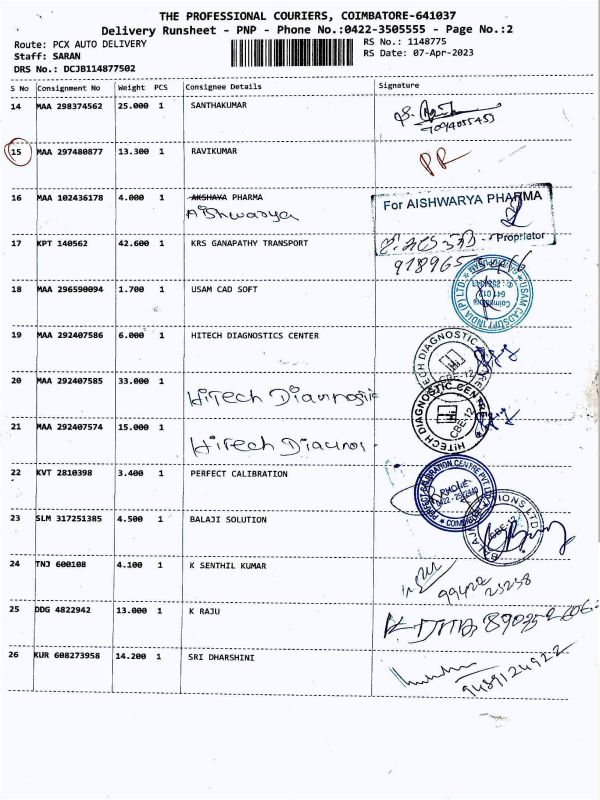 THE PROFESSIONAL COURIERS, COIMBATORE-641037
Delivery Runsheet - PNP - Phone No.:0422-3505555 - Page No.:2
Route: PCX AUTO DELIVERY
RS No.: 1148775
Staff: SARAN
RS Date: 07-Apr-2023
DRS No.: DCJB114877502
S No Consignment No Weight PCS Consignee Details Signature
14 MAA 298374562 25.000 1 SANTHAKUMAR
15 MAA 297480877 13.300 1 RAVIKUMAR PR
16 MAA 102436178 4.000 1 AKSHAYA PHARMA
Aishwarya
For AISHWARYA PHARMA
Proprietor
17 KPT 140562 42.600 1 KRS GANAPATHY TRANSPORT
18 MAA 296590094 1.700 1 USAM CAD SOFT
USAM CADSOFT INDIA (P) LTD
Coimbatore
641 012
19 MAA 292407586 6.000 1 HITECH DIAGNOSTICS CENTER
HITECH DIAGNOSTIC CENTRE
CBE-12
20 MAA 292407585 33.000 1 HiTech Diagnostic
HITECH DIAGNOSTIC CENTRE
CBE-12
21 MAA 292407574 15.000 1
22 KVT 2810398 3.400 1 PERFECT CALIBRATION
PERFECT CALIBRATION CENTRE PVT LTD
COIMBATORE
23 SLM 317251385 4.500 1 BALAJI SOLUTION
BALAJI SOLUTIONS LTD
CBE-12
24 TNJ 600108 4.100 1 K SENTHIL KUMAR
99422
25258
25 DDG 4822942 13.000 1 K RAJU
26 KUR 608273958 14.200 1 SRI DHARSHINI
9489124922